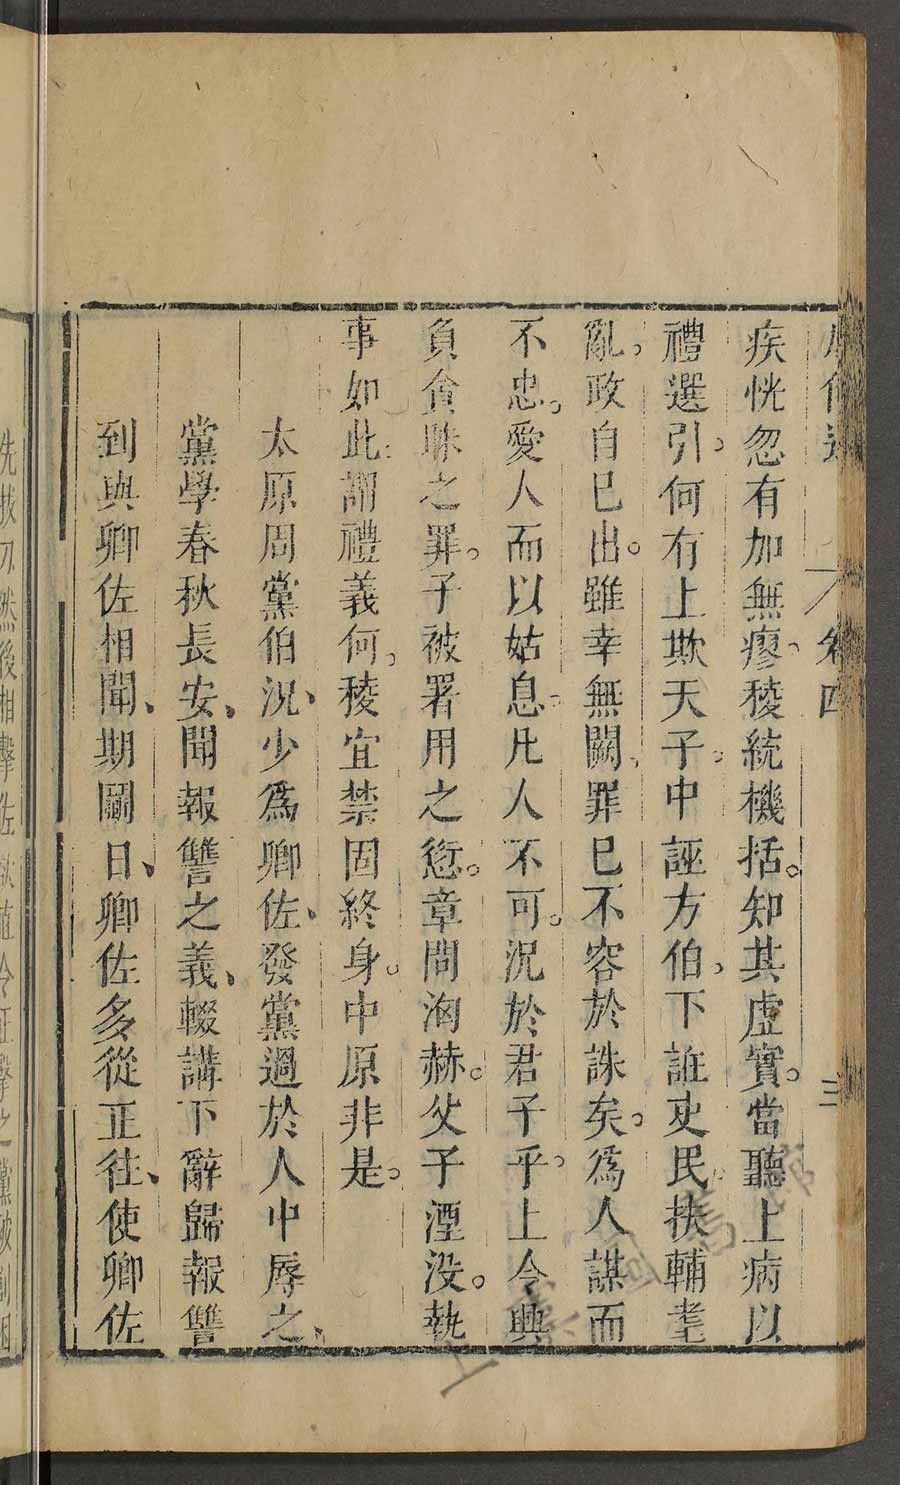 卷四
三
疾恍忽有加無瘳稜統機括。知其虛實。當聽上病以
禮選引。何有上欺天子。中誣方伯，下誑吏民。扶輔耄
亂，政自已出。雖幸無闕，罪已不容於誅矣。為人謀而
不忠。愛人而以姑息。凡人不可。況於君子乎，上令興
負貪昧之罪。子被署用之愆。章問洶赫。父子湮没。執
事如此。謂禮義何，稜宜禁固終身。中原非是。
太原周黨伯況、少為鄉佐、發黨過於人中辱之、
黨學春秋長安、聞報讐之義、輟講下辭歸報讐
到與鄉佐相聞、期鬭日、鄉佐多從正往、使鄉佐
先拔刀然後相擊佐欲直令正擊之黨被創困